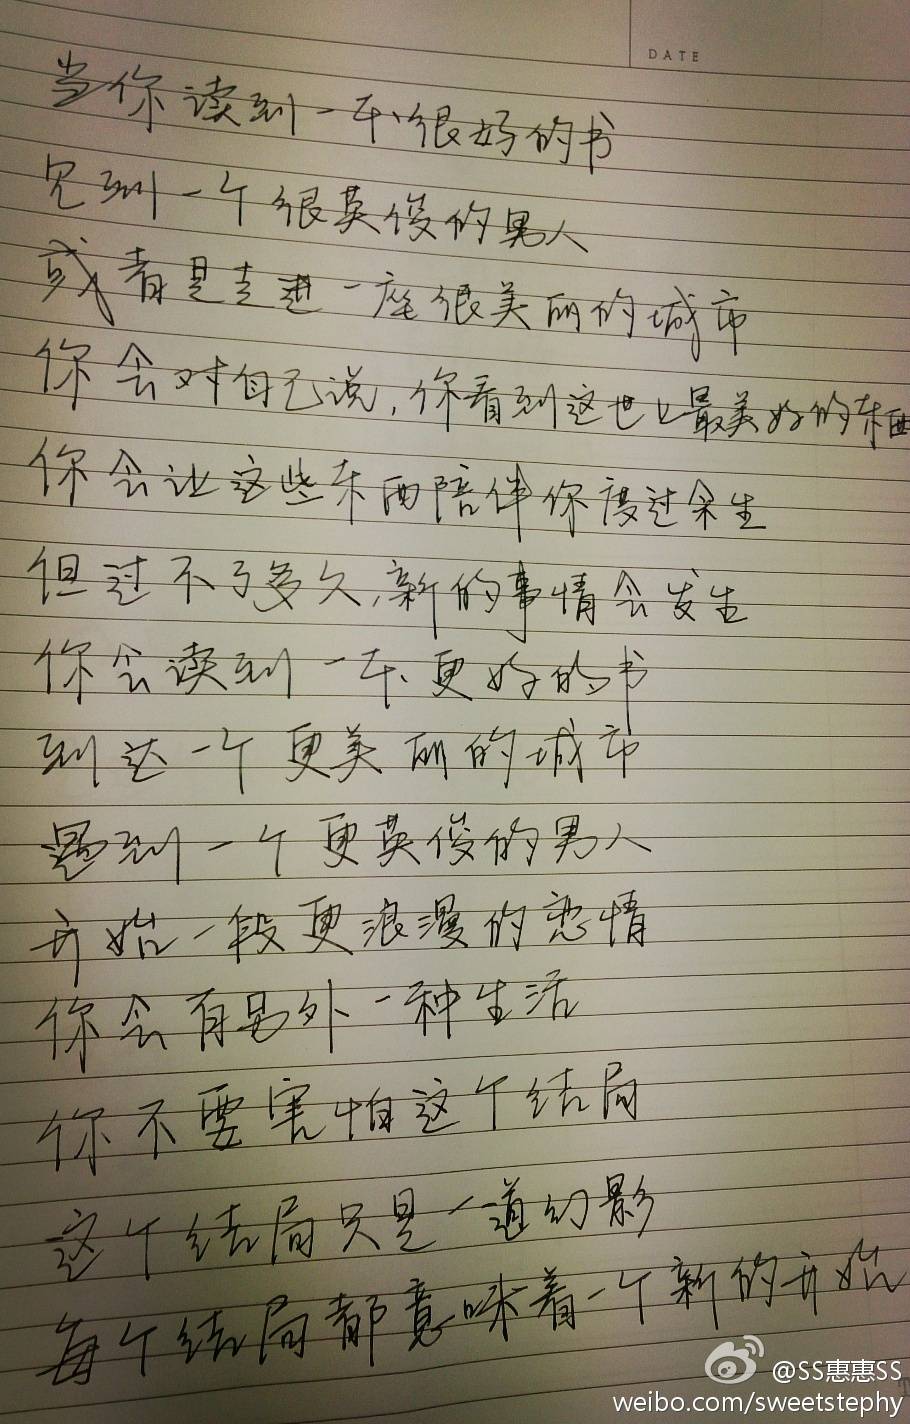 DATE
当你读到一本很好的书
见到一个很英俊的男人
或者是走进一座很美丽的城市
你会对自己说,你看到这世上最美好的东西
你会让这些东西陪伴你度过余生
但过不了多久,新的事情会发生
你会读到一本更好的书
到达一个更美丽的城市
遇到一个更英俊的男人
开始一段更浪漫的恋情
你会有另外一种生活
你不要害怕这个结局
这个结局只是一道幻影
每个结局都意味着一个新的开始
@SS惠惠SS
weibo.com/sweetstephy